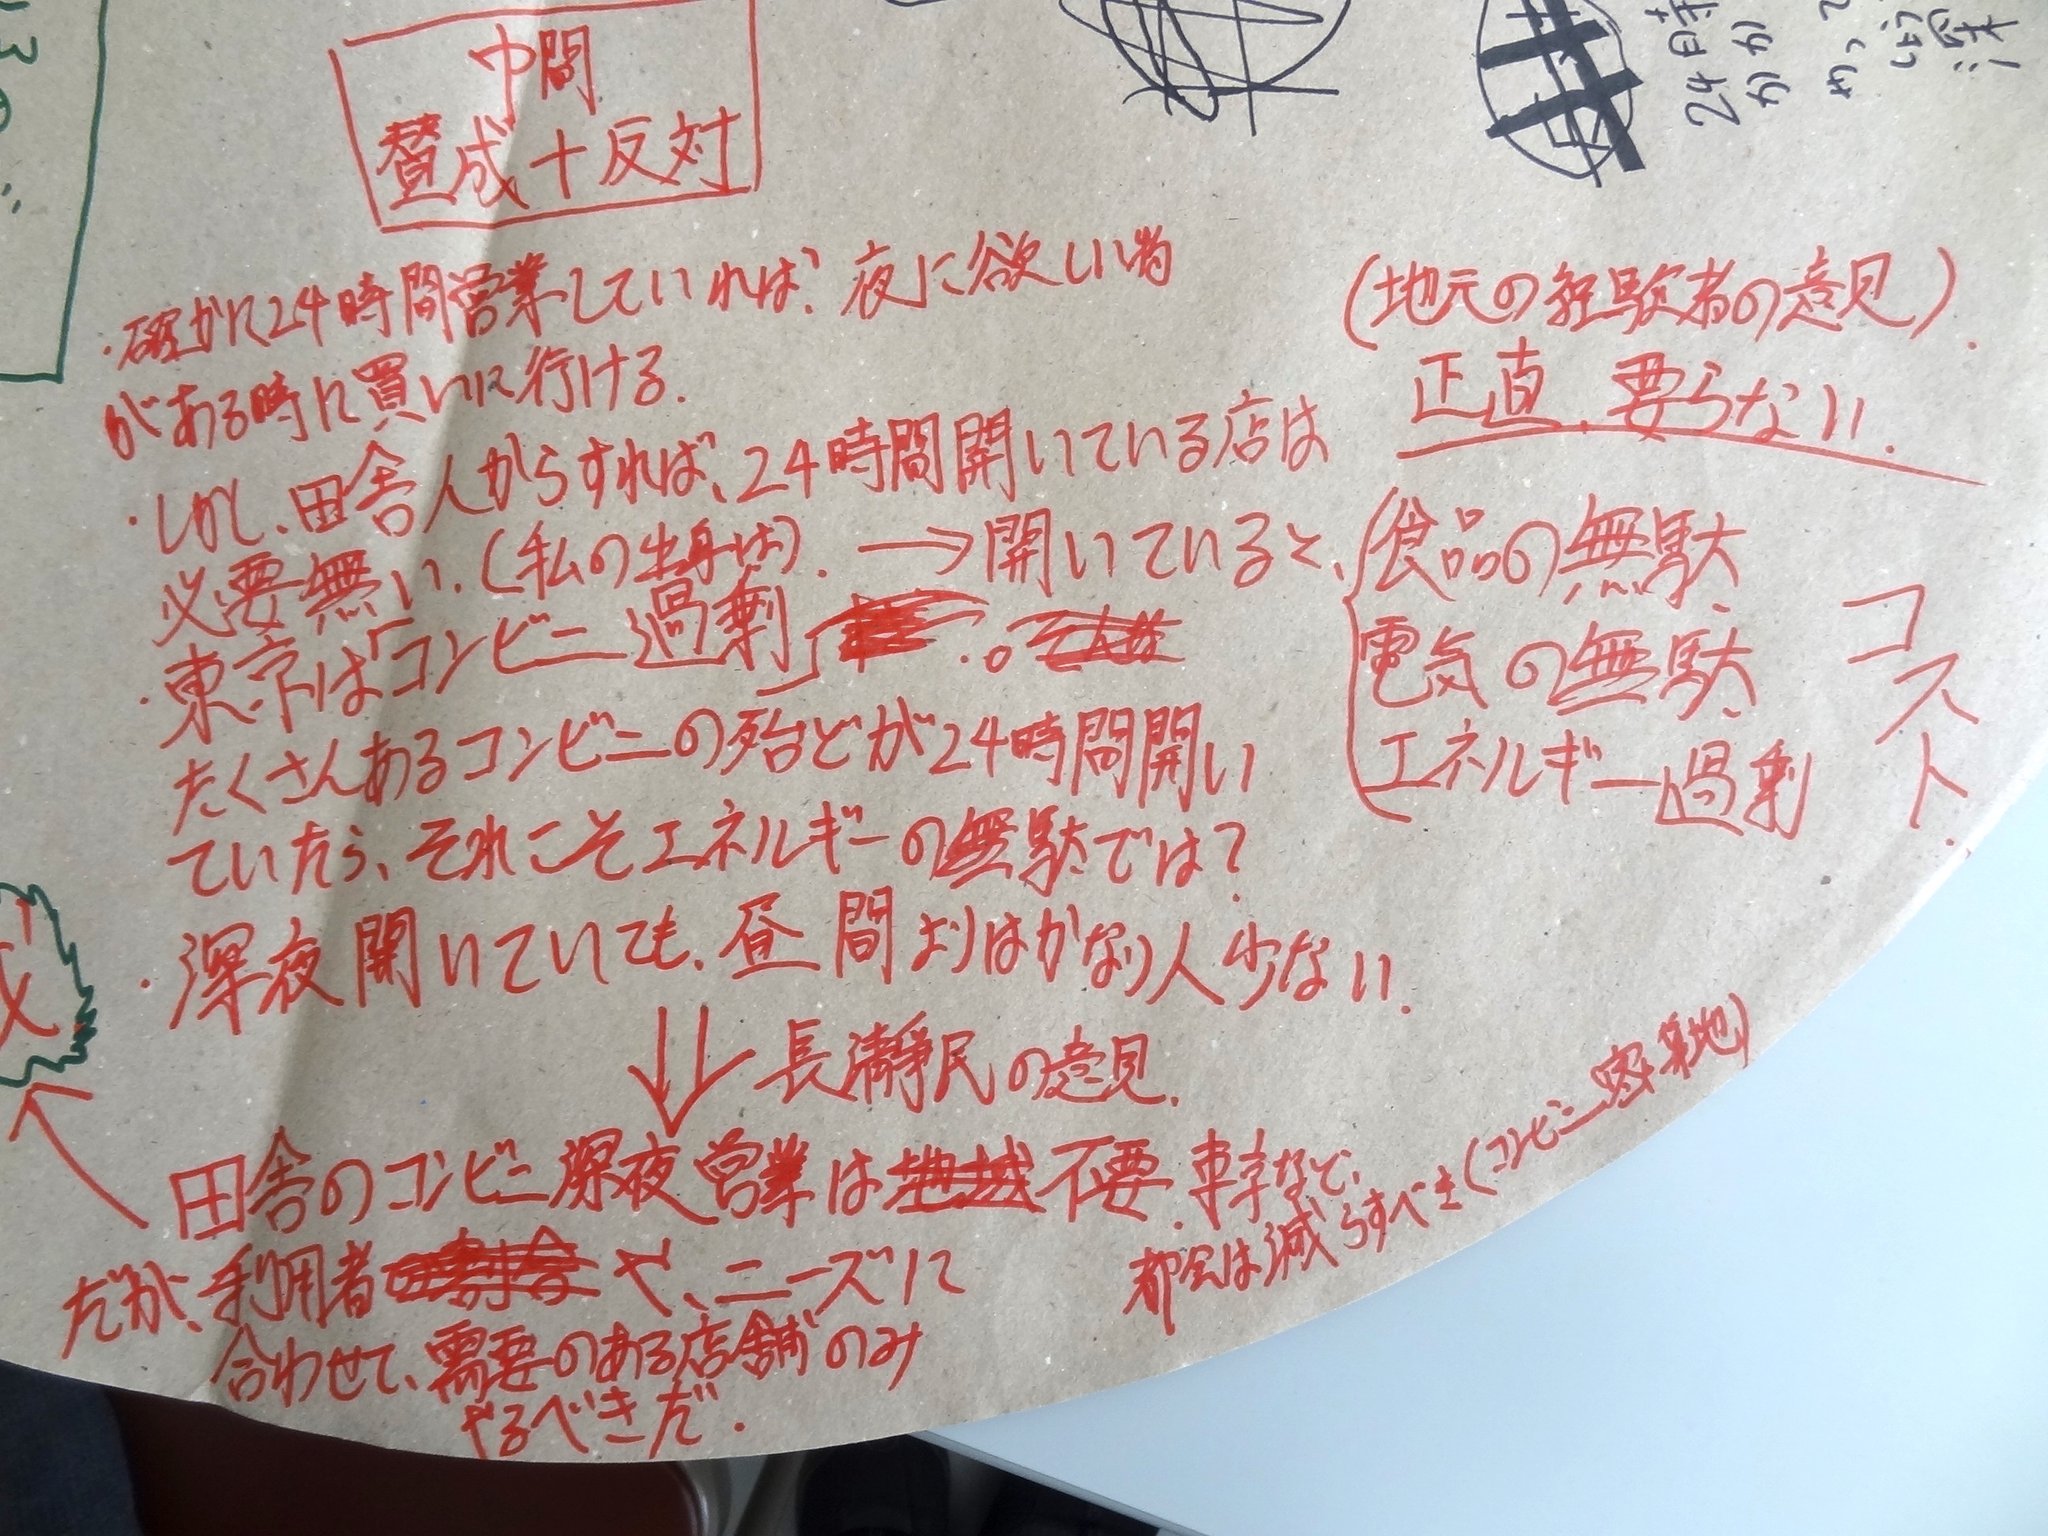 中間
賛成+反対
・確かに24時間営業していれば、夜に欲しい物
がある時に買いに行ける.
・しかし、田舎人からすれば、24時間開いている店は
必要無い.(私の出身は).→開いていると、
・東京は「コンビニ過剰」。
たくさんあるコンビニの殆どが24時間開い
ていたら、それこそエネルギーの無駄では?
・深夜開いていても、昼間よりはかなり人少ない.
(地元の経験者の意見).
正直、要らない.
食品の無駄
電気の無駄
エネルギー過剰
コスト.
長瀞民の意見.
田舎のコンビニ深夜営業は不要.
だが、利用者や、ニーズに
合わせて、需要のある店舗のみ
やるべきだ.
東京など、
都会は減らすべき(コンビニ密集地)
24時
かか